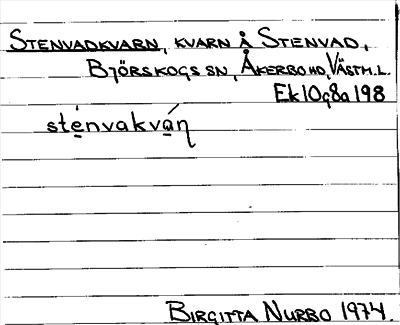 STENVADKVARN, KVARN Å STENVAD,
BJÖRSKOGS SN, ÅKERBO HD, VÄSTM.L.
Ek 10g8a 198
sténvakván
BIRGITTA NURBO 1974.